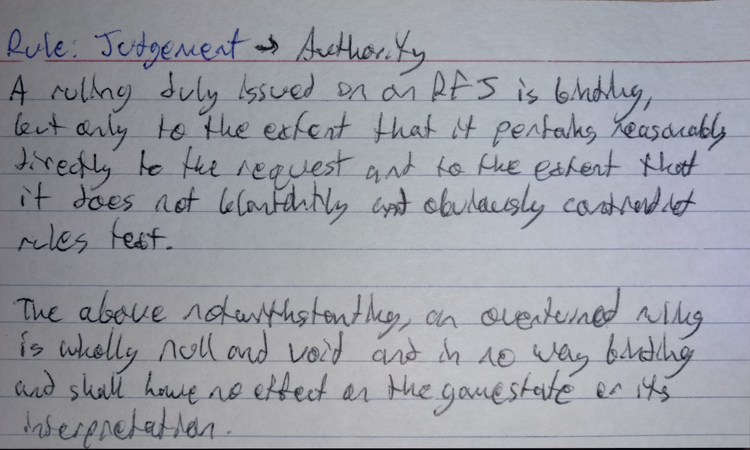 Rule: Judgement → Authority
A ruling duly issued on an RFJ is binding,
but only to the extent that it pertains reasonably
directly to the request and to the extent that
it does not blantantly and obviously contradict
rules text.
The above notwithstanting, an overturned ruling
is wholly null and void and in no way binding
and shall have no effect on the gamestate or its
interpretation.